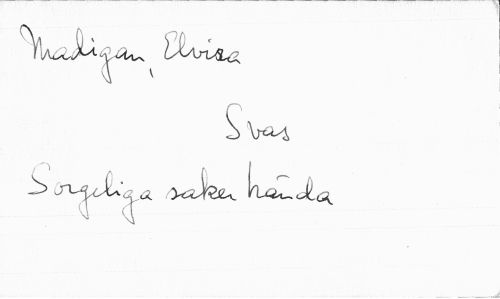 Madigan, Elvira
Svas
Sorgeliga saker hända